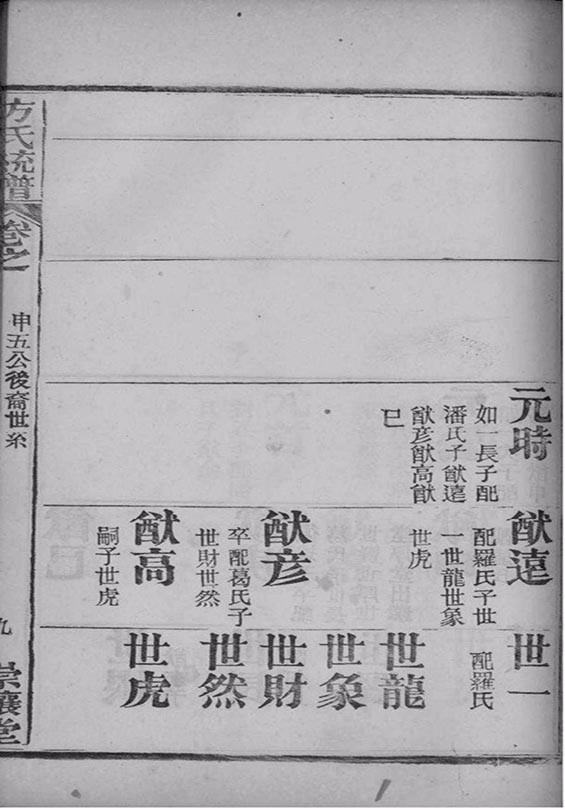 元時
如一長子配
潘氏子猷遠
猷彦猷高猷
巳
猷遠
配羅氏子世
一世龍世象
世虎
猷彦
卒配葛氏子
世財世然
猷高
嗣子世虎
世一
配羅氏
世龍
世象
世財
世然
世虎
方氏統譜
卷之
申五公後裔世系
九
崇讓堂